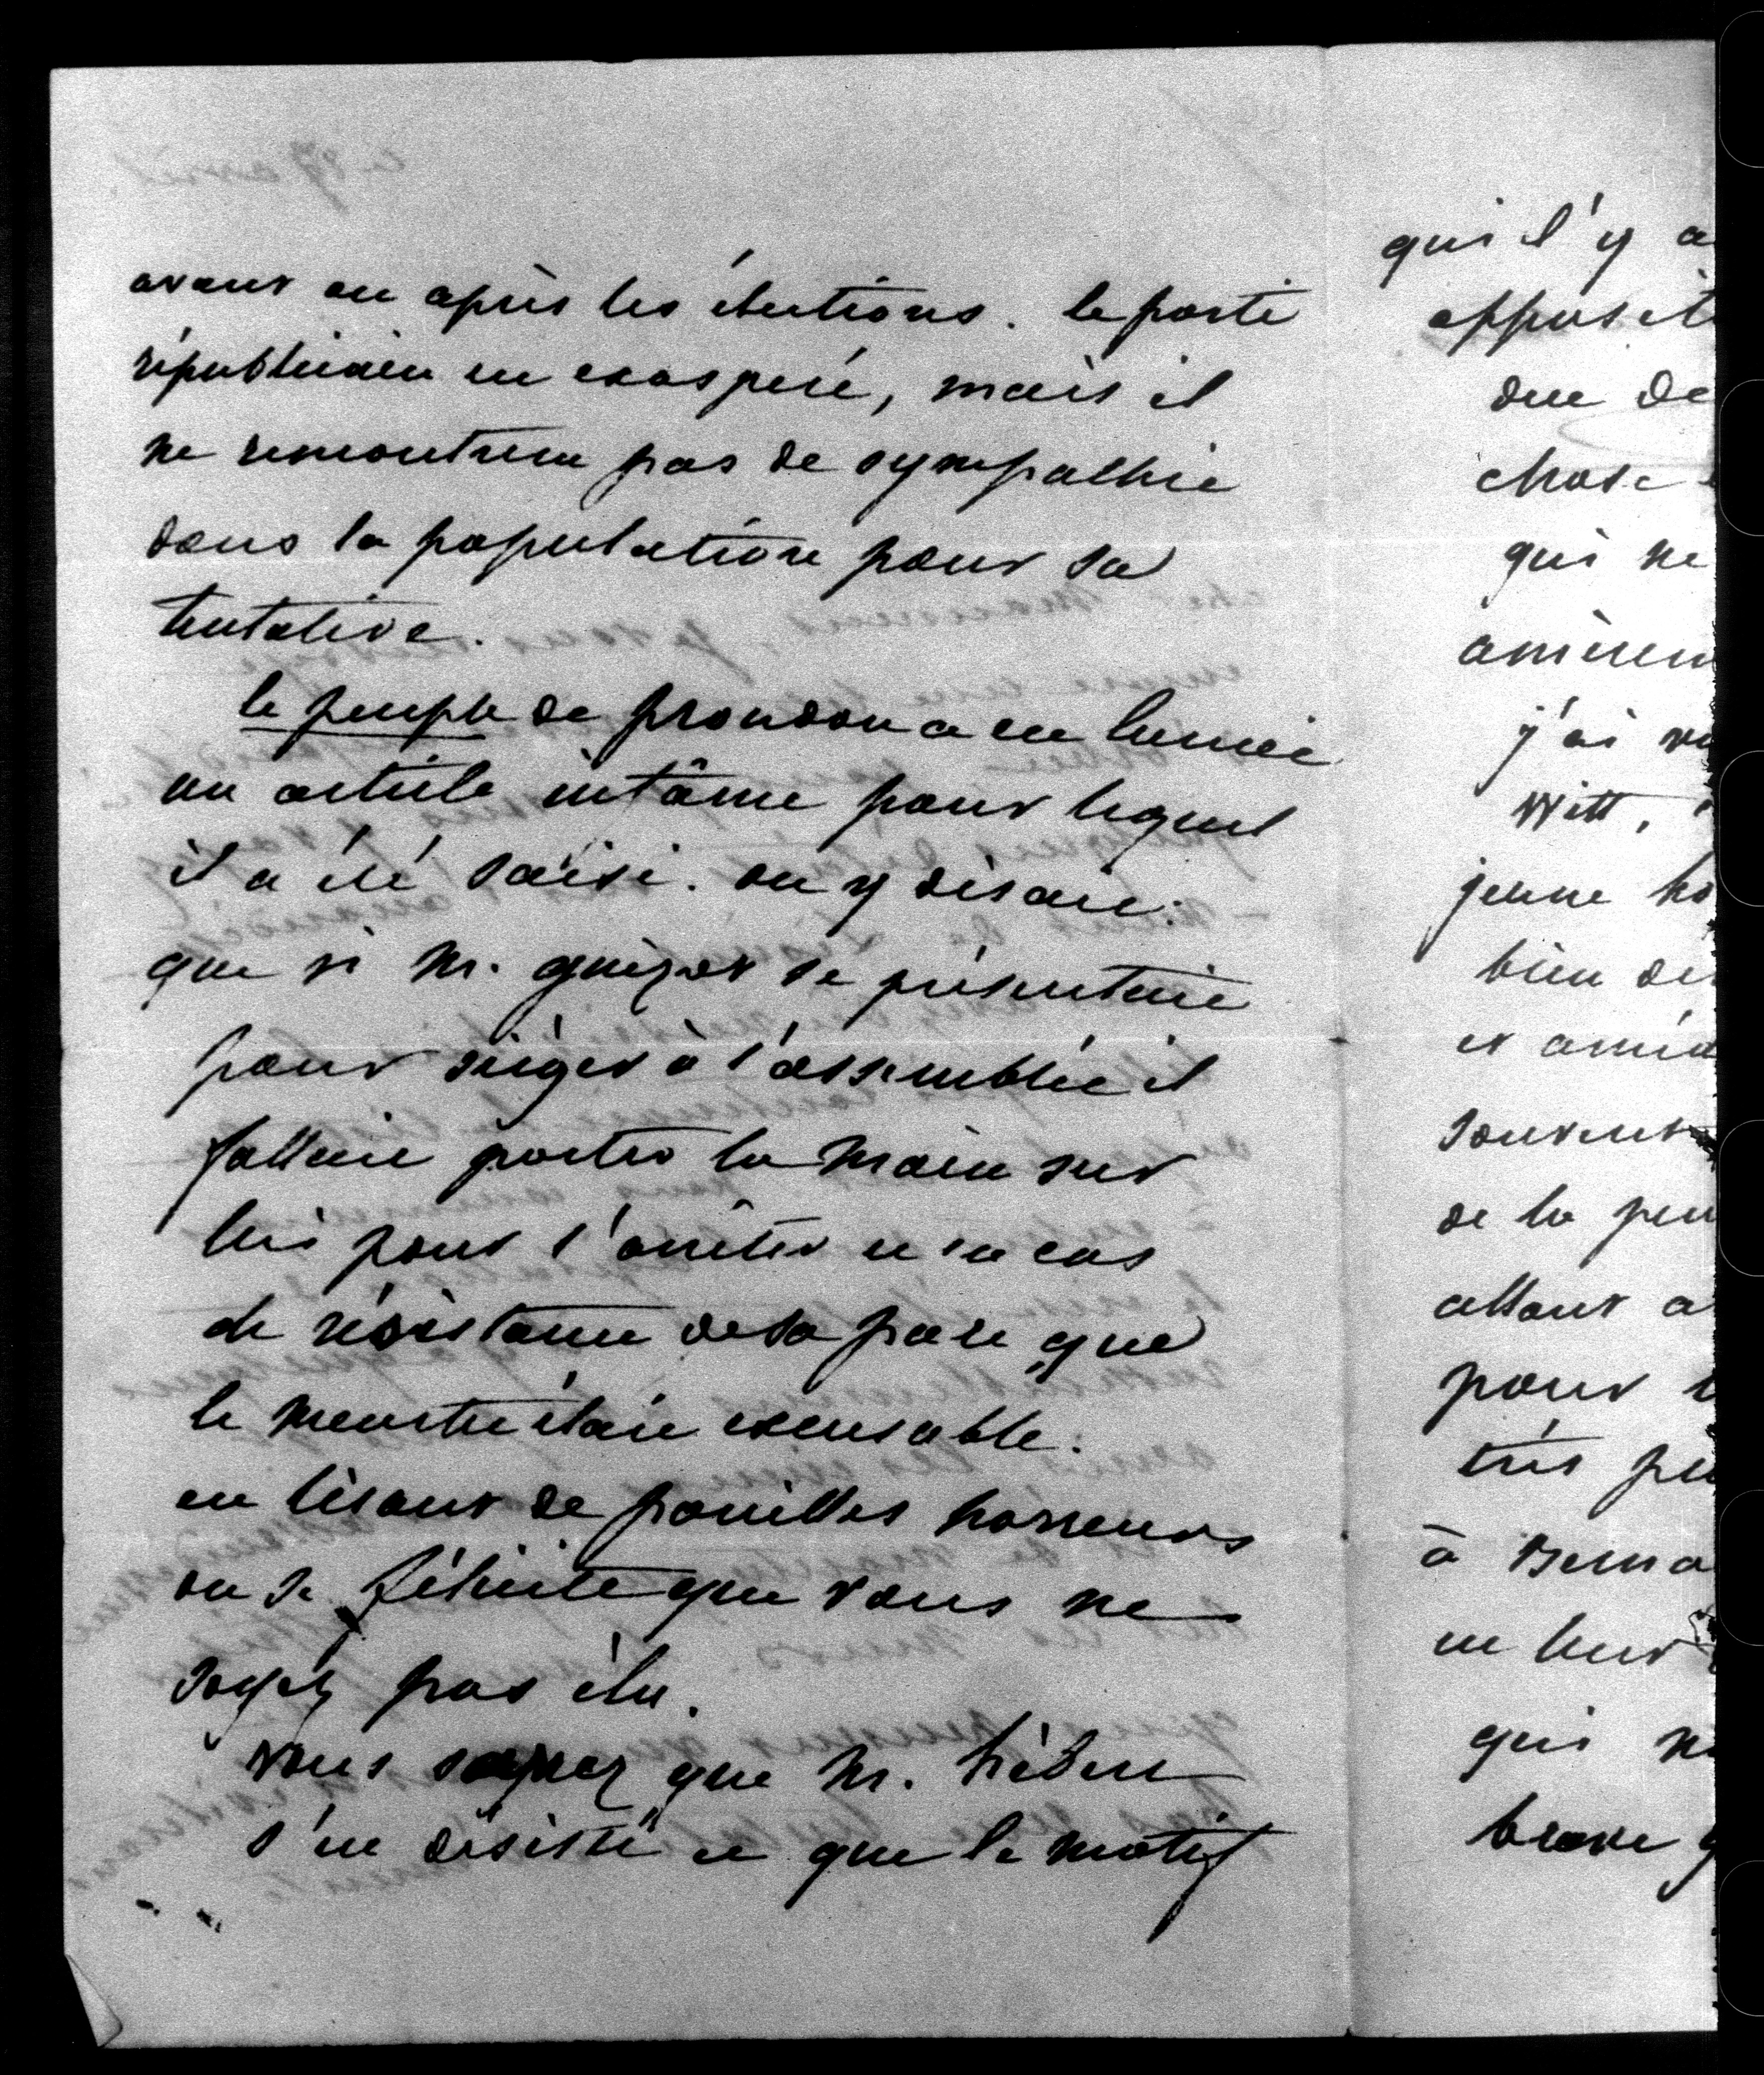 avant ou après les élections. le parti
républicain en exaspéré, mais il
ne rencontrera pas de sympathie
dans la population pour sa
tentative.
le peuple de proudon a eu lancé
un article infâme pour lequel
il a été saisi. on y disait:
que si M. guizot se présentait
pour siéger à l'assemblée il
fallait porter la main sur
lui pour l'arrêter et en cas
de résistance de sa part que
le meurtre était excusable.
en lisant de pareilles horreurs
on se félicite que vous ne
soyéz pas élu.
vous savez que M. hébert
s'en désisté et que le motif
qui l'y a
opposit
due de
chose
qui ne
amèrem
j'ai vu
Witt,
jeune ho
bien de
et amén
souvent
de la peu
allant a
pour
très peu
à
en leur
qui n
brave g